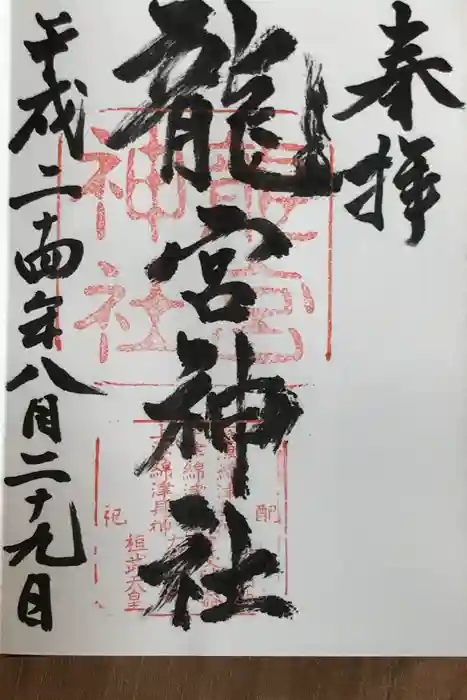 奉拝
龍宮神社
平成二十四年八月二十九日
龍宮
神社
配
祀
桓武天皇